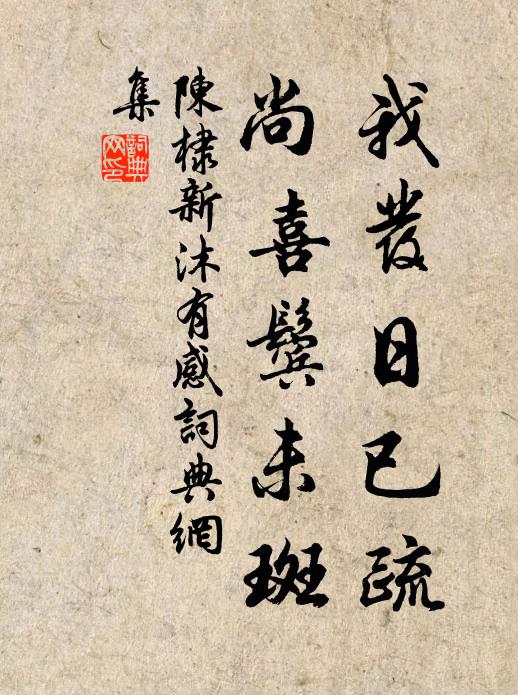 我發日已疏
尚喜鬢未斑
陳棣新沐有感詞典網
集
詞典
网印